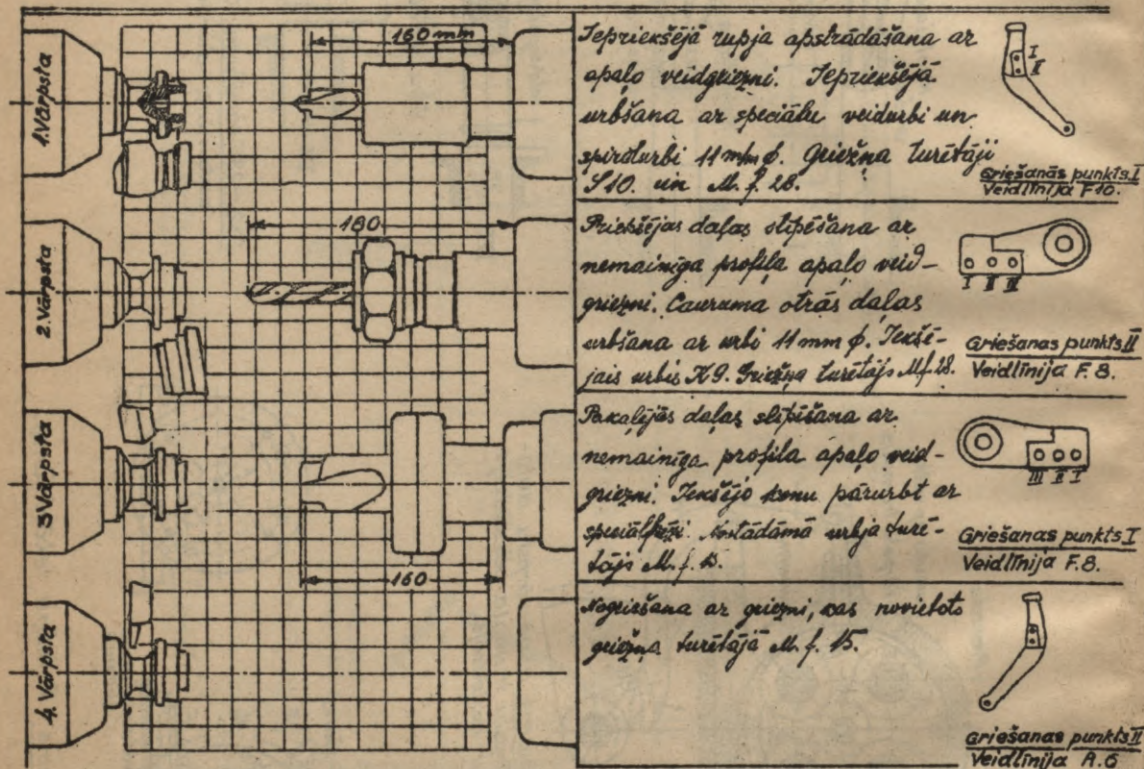 1.Vārpsta
160 mm
Iepriekšējā rupja apstrādāšana ar
apaļo veidgriezni. Iepriekšējā
urbšana ar speciālu veidurbi un
spirālurbi 11 mm ϕ. Griežņa turētāji
S10. un M. f. 28.
I
II
Griešanās punkts I
Veidlīnija F10.
2.Vārpsta
180
Priekšējas daļas slīpēšana ar
nemainīga profila apaļo veid-
griezni. Cauruma otrās daļas
urbšana ar urbi 11 mm ϕ. Iekšē-
jais urbis K9. Griežņa turētājs M.f.28.
I II III
Griešanas punkts II
Veidlīnija F.8.
3Vārpsta
160
Pakaļējās daļas slīpēšana ar
nemainīga profila apaļo veid-
griezni. Iekšējo konu pārurbt ar
speciālfrēzi. Nostādāmā urbja turē-
tājs M. f. 15.
III II I
Griešanas punkts I
Veidlīnija F.8.
4. Vārpsta
Nogriešana ar griezni, kas novietots
griežņa turētājā M. f. 15.
Griešanas punkts II
Veidlīnija A.6